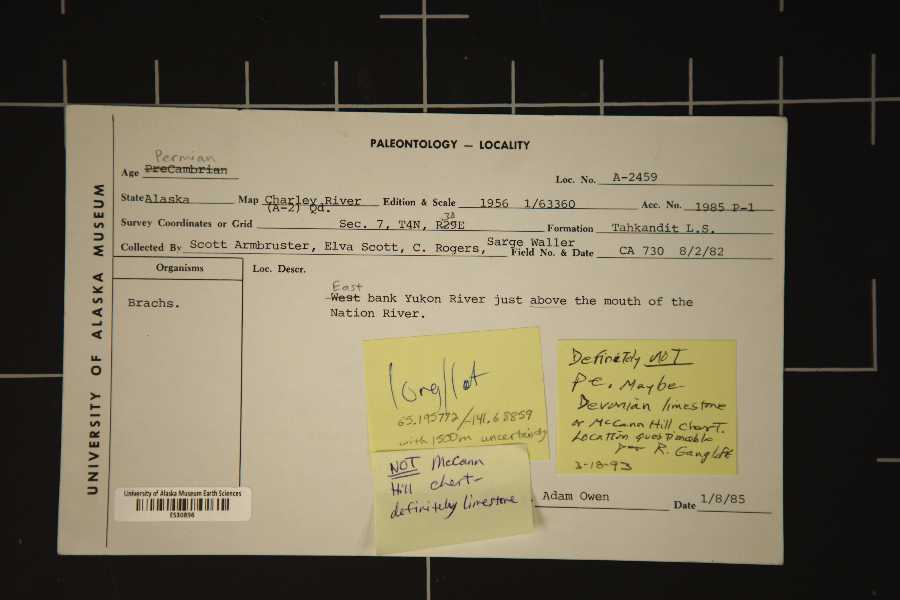 PALEONTOLOGY — LOCALITY
Permian
Age PreCambrian
Loc. No. A-2459
State Alaska Map Charley River Edition & Scale 1956 1/63360 Acc. No. 1985 P-1
(A-2) Qd.
30
Survey Coordinates or Grid Sec. 7, T4N, R29E Formation Tahkandit L.S.
Collected By Scott Armbruster, Elva Scott, C. Rogers, Sarge Waller Field No. & Date CA 730 8/2/82
Organisms
Loc. Descr.
Brachs.
East
West bank Yukon River just above the mouth of the
Nation River.
long/lat
65.195772/-141.68859
with 1500m uncertainty
NOT McCann
Hill chert-
definitely limestone
Definitely NOT
pЄ. Maybe
Devonian limestone
or McCann Hill Chert.
Location questionable
per R. Gangloff
3-18-93
Adam Owen
Date 1/8/85
UNIVERSITY OF ALASKA MUSEUM
University of Alaska Museum Earth Sciences
ES30896